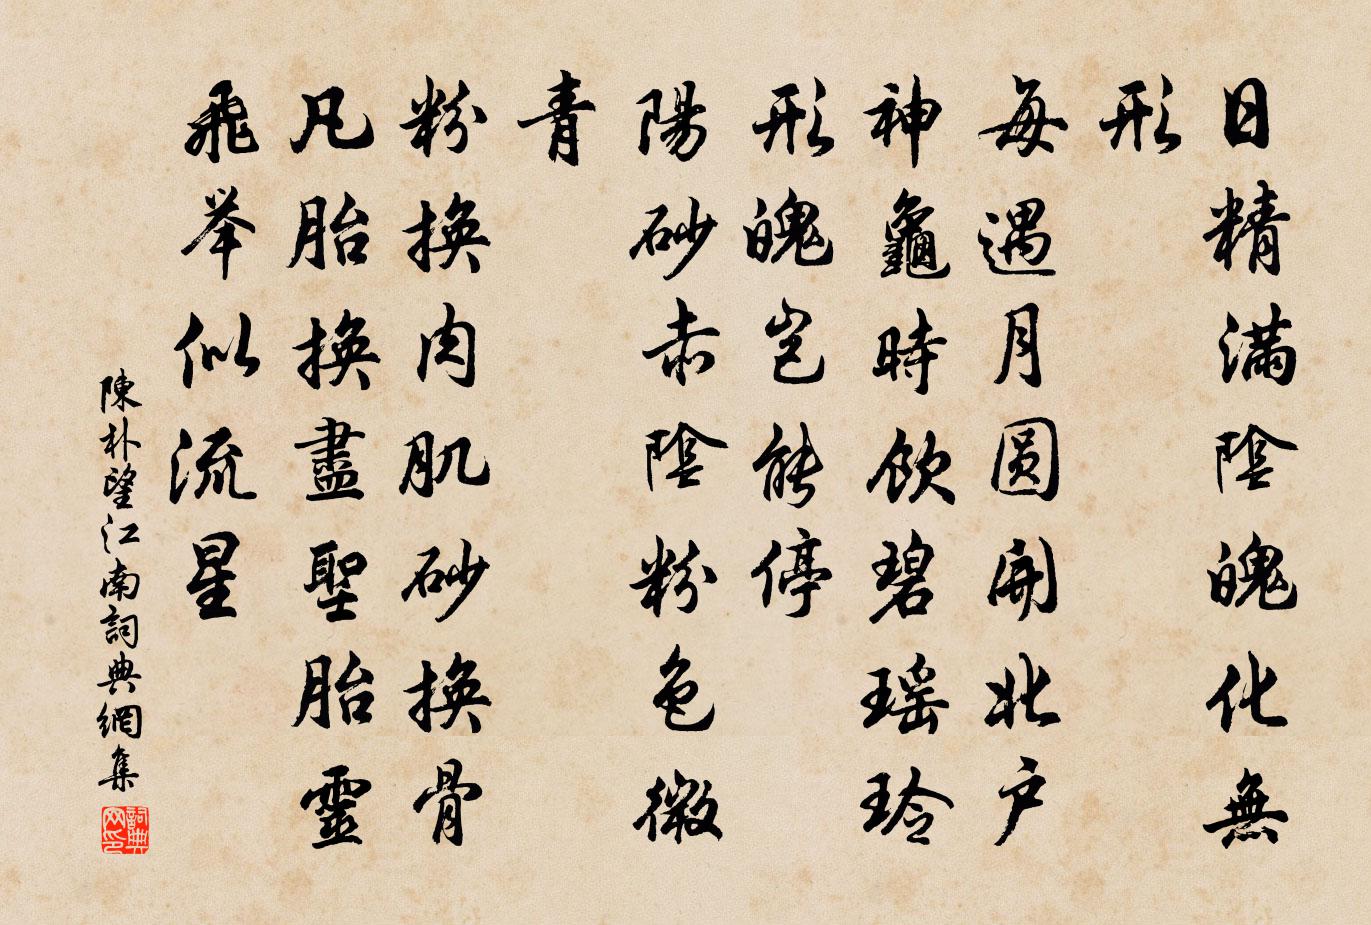 日精滿陰魄化無
形
每遇月圆開北户
神龜時飲碧瑶玲
形魄豈能停
陽砂赤陰粉色微
青
粉換肉肌砂換骨
凡胎換盡聖胎靈
飛举似流星
陳朴望江南詞典網集
詞典网印